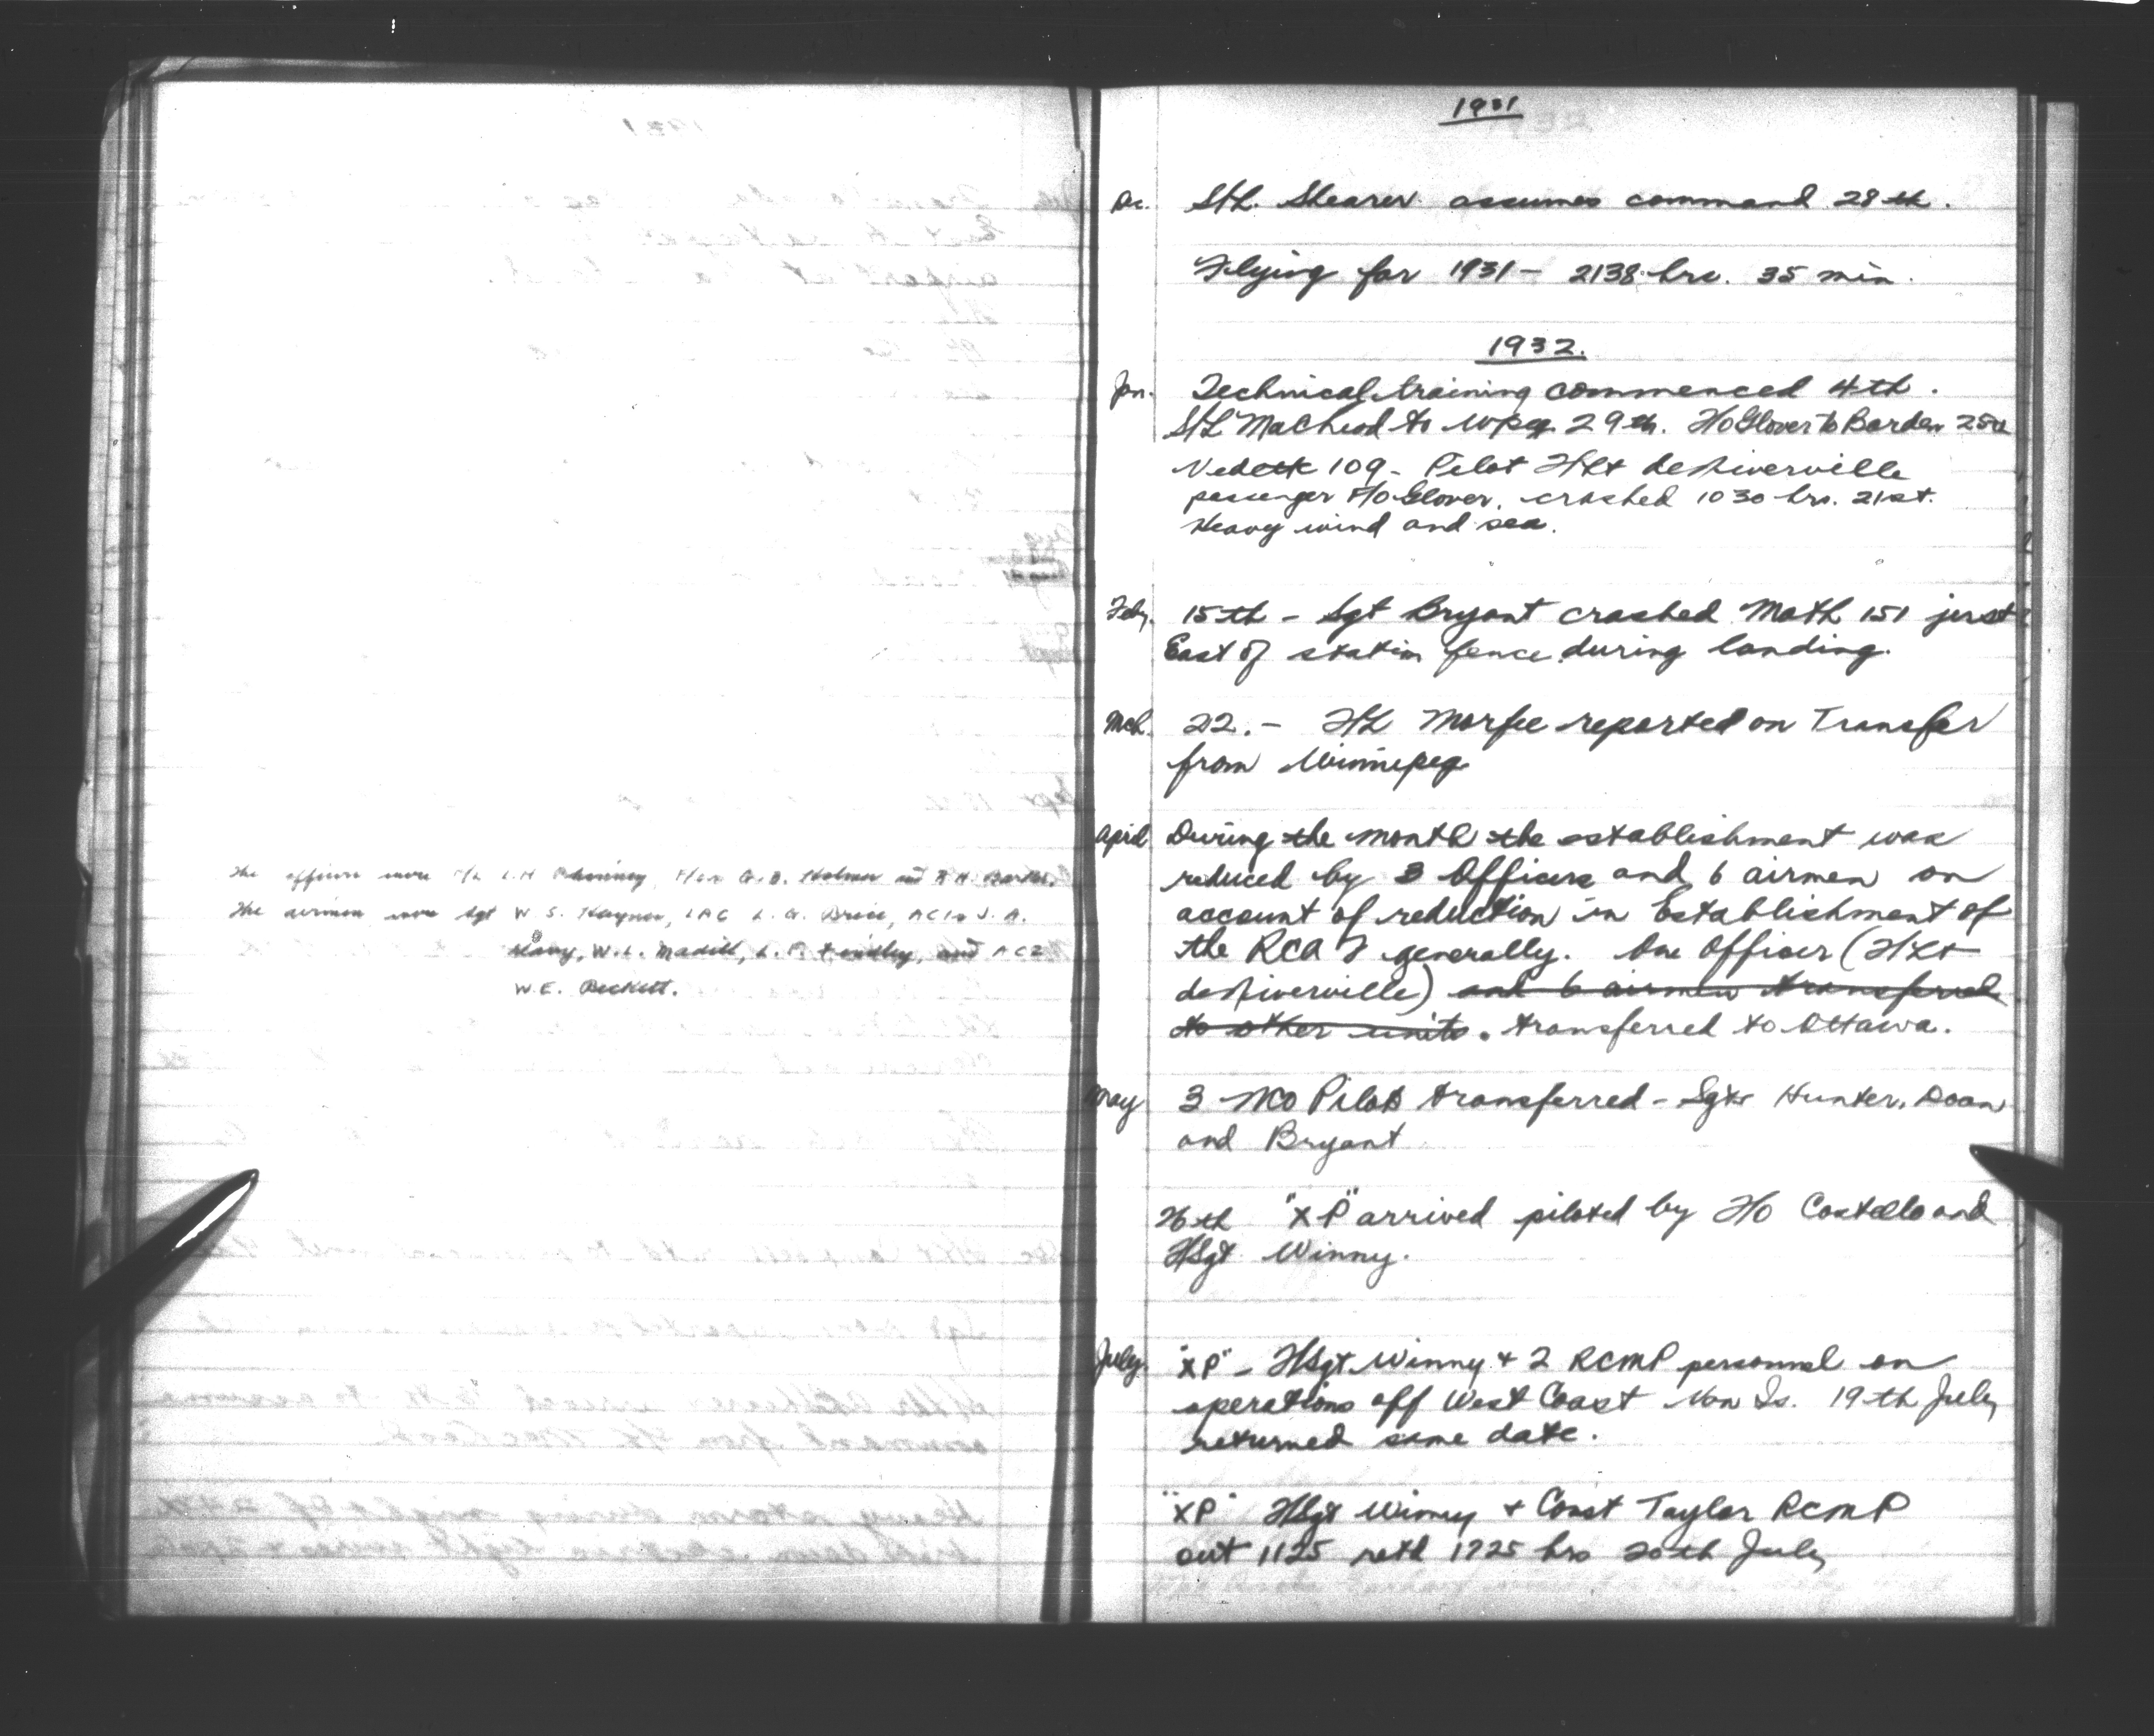 The officers were F/L L.H. Phinney, F/Os G.D. Holmes and R.H. Barker.
The airmen were Sgt W.S. Haynes, LAC L.G. Brice, AC1s J.A.
W.L. Madill, L.P. and AC2
W.E. Beckett.
1931
Dec. S/L. Shearer assumes command 28th.
Flying for 1931 - 2138 hrs. 35 min.
1932.
Jan. Technical training commenced 4th.
S/L MacLeod to Wpeg 29th. F/O Glover to Borden 25th
Vedette 109 - Pilot F/Lt deNiverville
passenger F/O Glover, crashed 1030 hrs. 21st.
Heavy wind and sea.
Feby. 15th - Sgt Bryant crashed Moth 151 just
East of station fence during landing.
Mch. 22. - F/L Morfee reported on Transfer
from Winnipeg
April During the month the establishment was
reduced by 3 Officers and 6 airmen on
account of reduction in Establishment of
the RCAF generally. One Officer (F/Lt
deNiverville) and 6 airmen transferred
to other units. transferred to Ottawa.
May 3 NCO Pilots transferred - Sgts Hunter, Doan
and Bryant
26th "XP" arrived piloted by F/O Costello and
F/Sgt Winny.
July. "XP" - F/Sgt Winny + 2 RCMP personnel on
operations off West Coast Van Is. 19th July
returned same date.
"XP" F/Sgt Winny + Const Taylor RCMP
out 1125 retd 1725 hrs 20th July